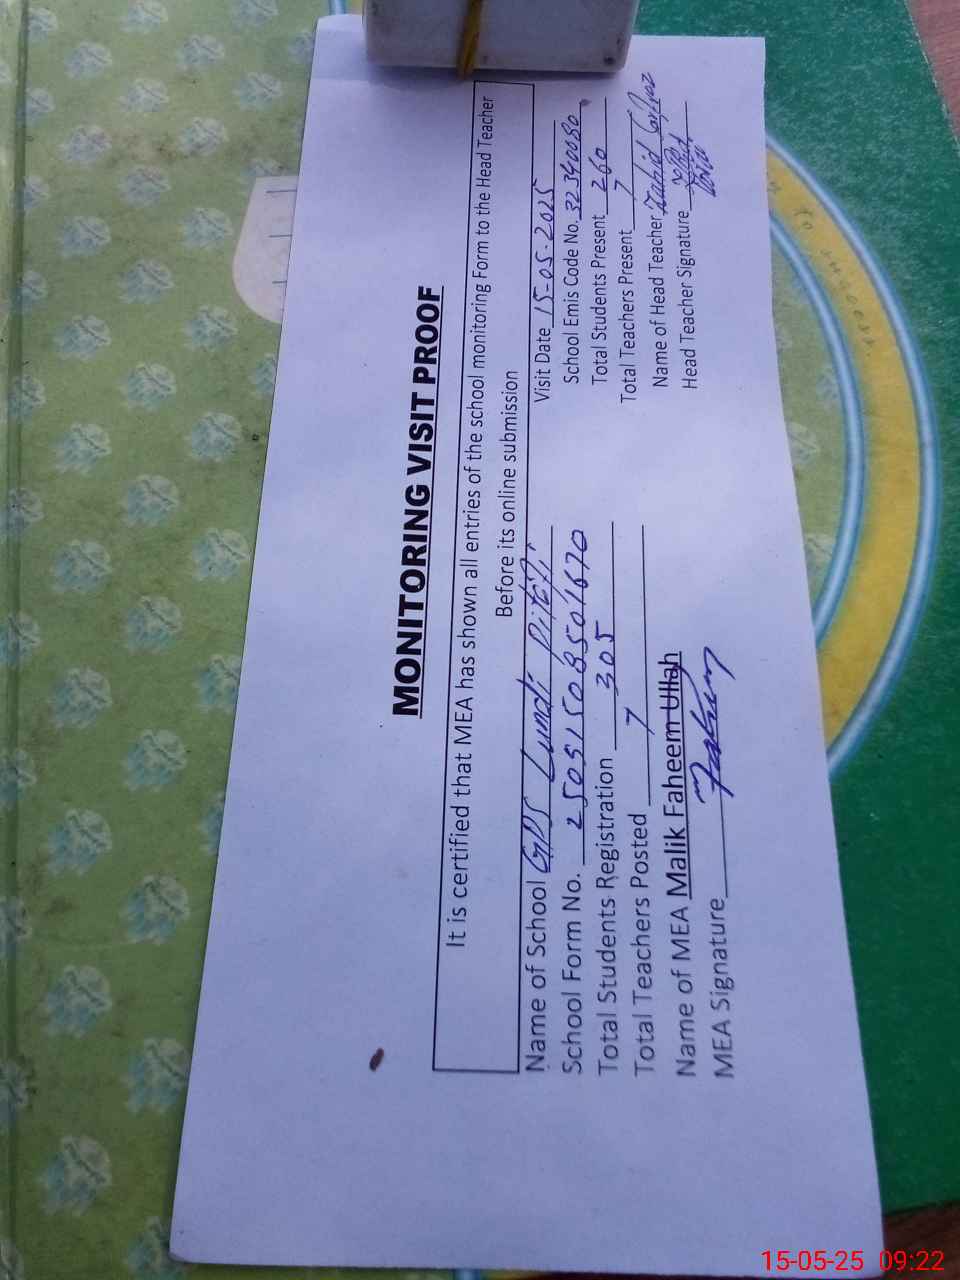 MONITORING VISIT PROOF
It is certified that MEA has shown all entries of the school monitoring Form to the Head Teacher
Before its online submission
Name of School GPS Lundi Pitafi Visit Date 15-05-2025
School Form No. 25051508501670 School Emis Code No. 32340080
Total Students Registration 305 Total Students Present 260
Total Teachers Posted 7 Total Teachers Present 7
Name of MEA Malik Faheem Ullah Name of Head Teacher Zahid
MEA Signature Faheem Head Teacher Signature
15-05-25 09:22